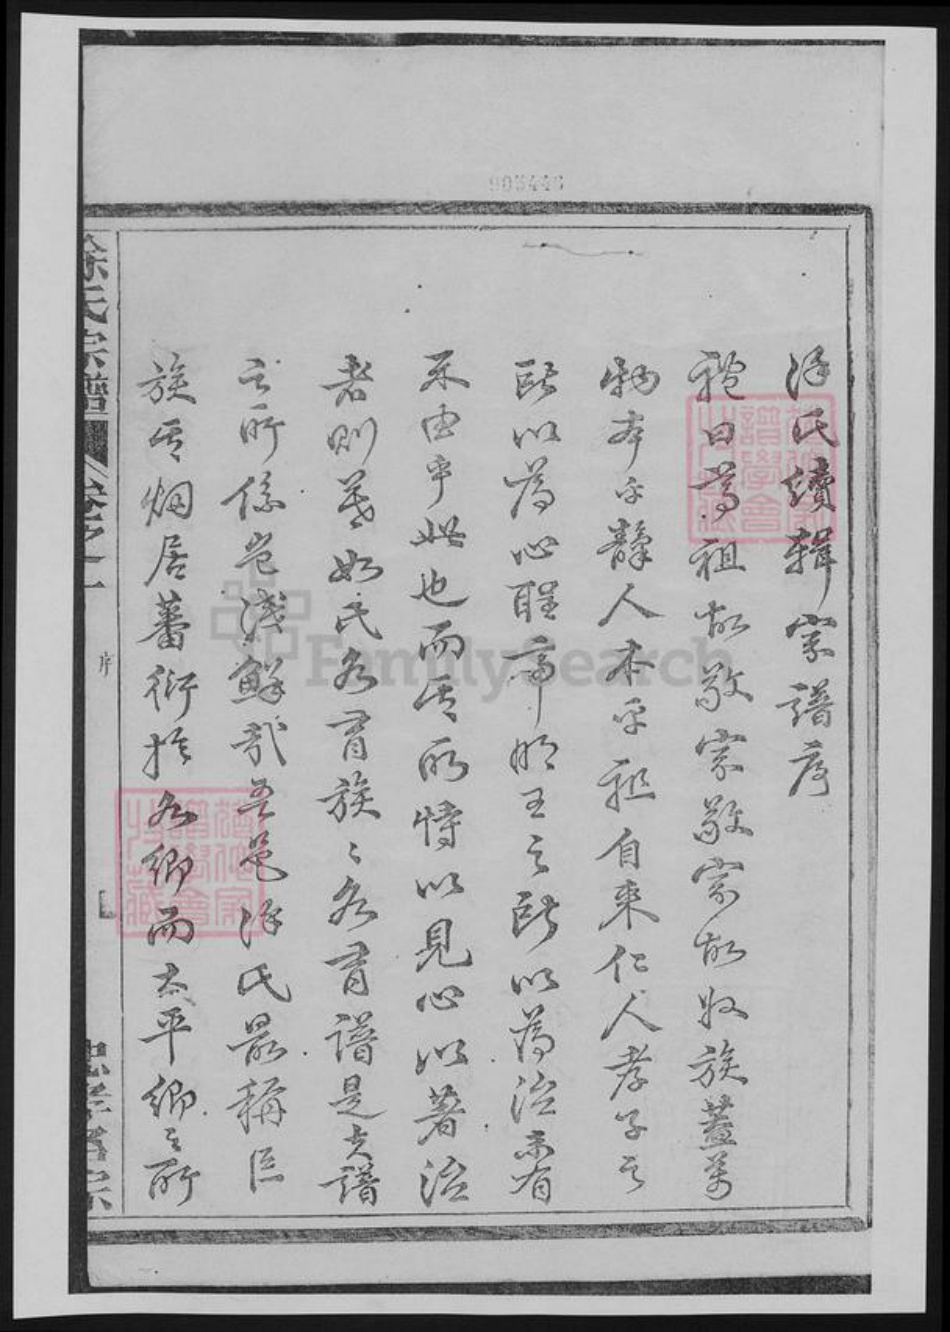 徐氏續輯宗譜序
禮曰尊祖故敬宗敬宗故收族蓋萬
物本乎靜人本乎祖自來仁人孝子之
所以為心聖帝明王之所以為治未有
不由乎此也而其所恃以見心以著治
者則莫如氏各有族〻各有譜是夫譜
之所係豈淺鮮哉吾邑徐氏最稱巨
族其烟居蕃衍於各鄉而太平鄉之所
徐氏宗譜
卷之一
序
905446
FamilySearch